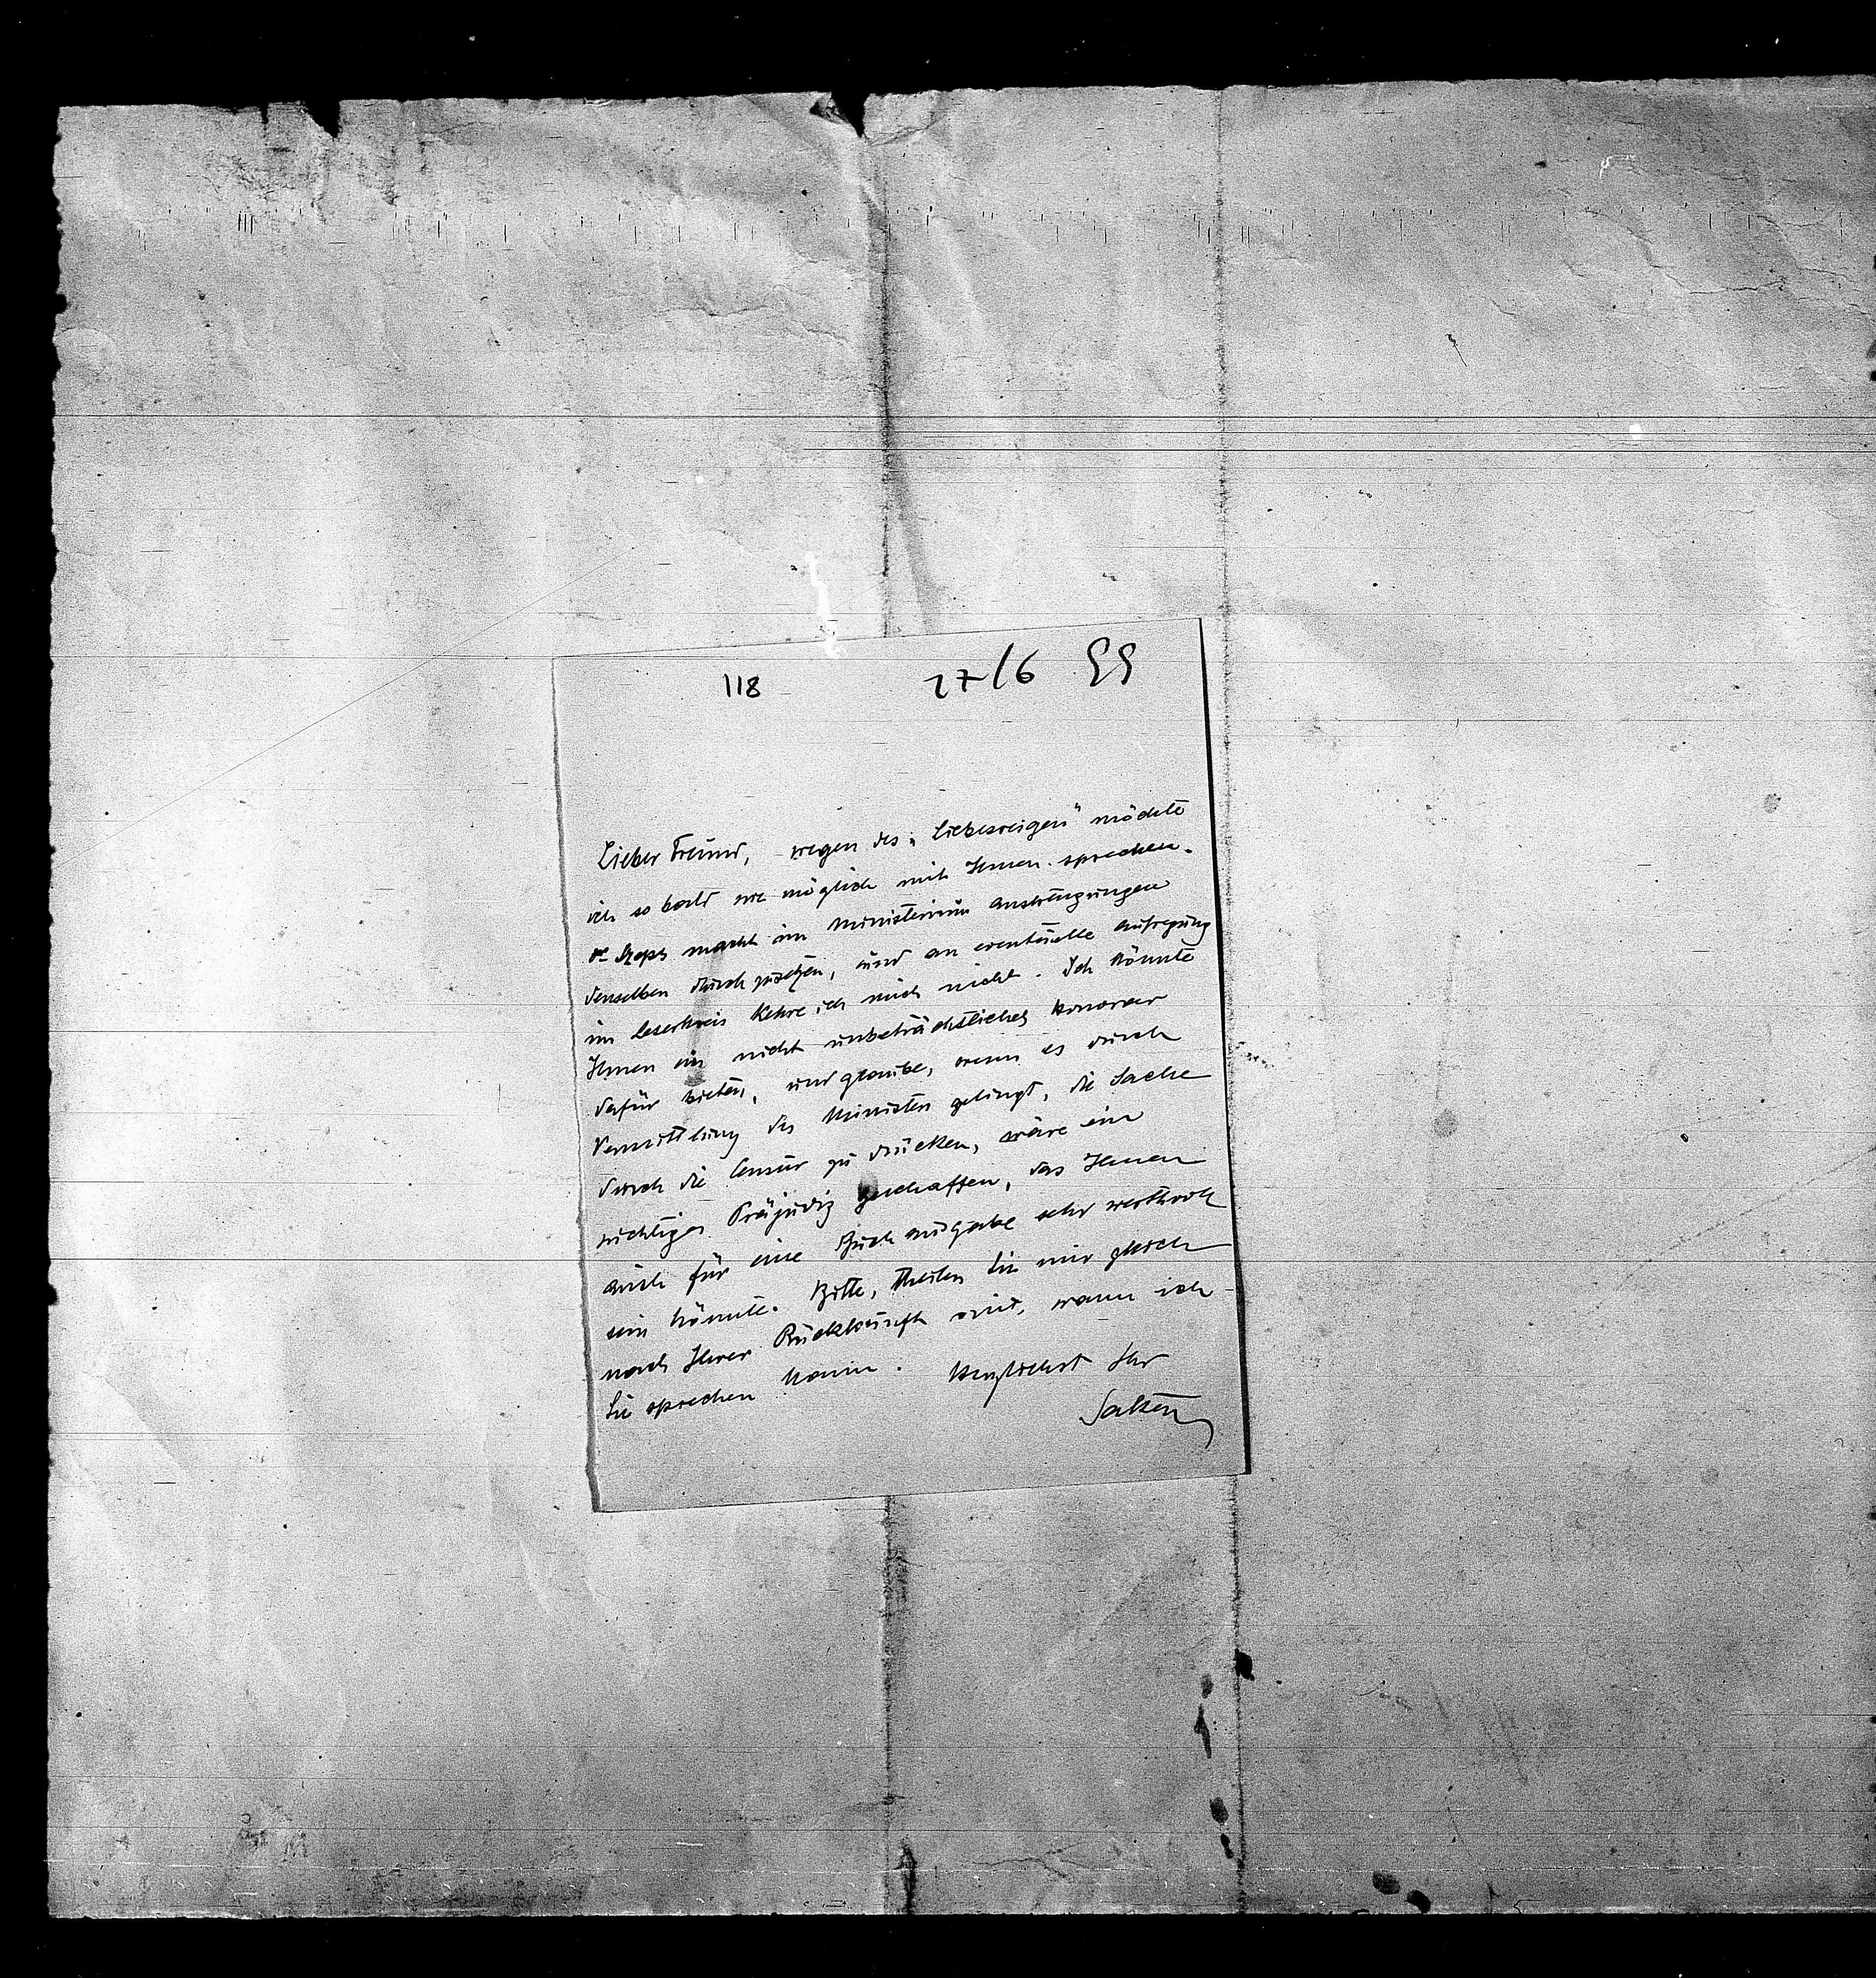 118 27/6 99
Lieber Freund, wegen des „Liebesreigen" möchte
ich so bald wie möglich mit Ihnen sprechen.
Dr Szeps macht im Ministerium Anstrengungen
denselben durchzusetzen, und an eventuelle Aufregung
im Leserkreis kehre ich mich nicht. Ich könnte
Ihnen ein nicht unbeträchtliches Honorar
dafür bieten, und glaube, wenn es durch
Vermittlung des Ministers gelingt, die Sache
durch die Censur zu drücken, wäre ein
wichtiges Präjudiz geschaffen, das Ihnen
auch für eine Buchausgabe sehr werthvoll
sein könnte. Bitte, theilen Sie mir gleich
nach Ihrer Rückkunft mit, wann ich
Sie sprechen kann. Herzlichst Ihr
Salten